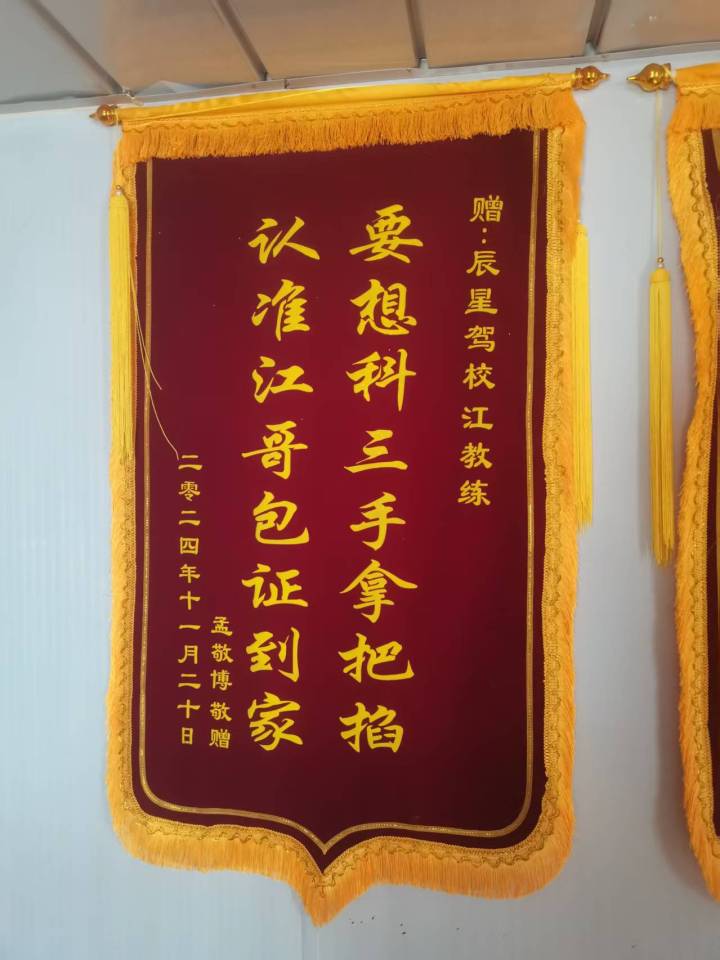 赠:辰星驾校江教练
要想科三手拿把掐
认准江哥包证到家
孟敬博敬赠
二零二四年十一月二十日